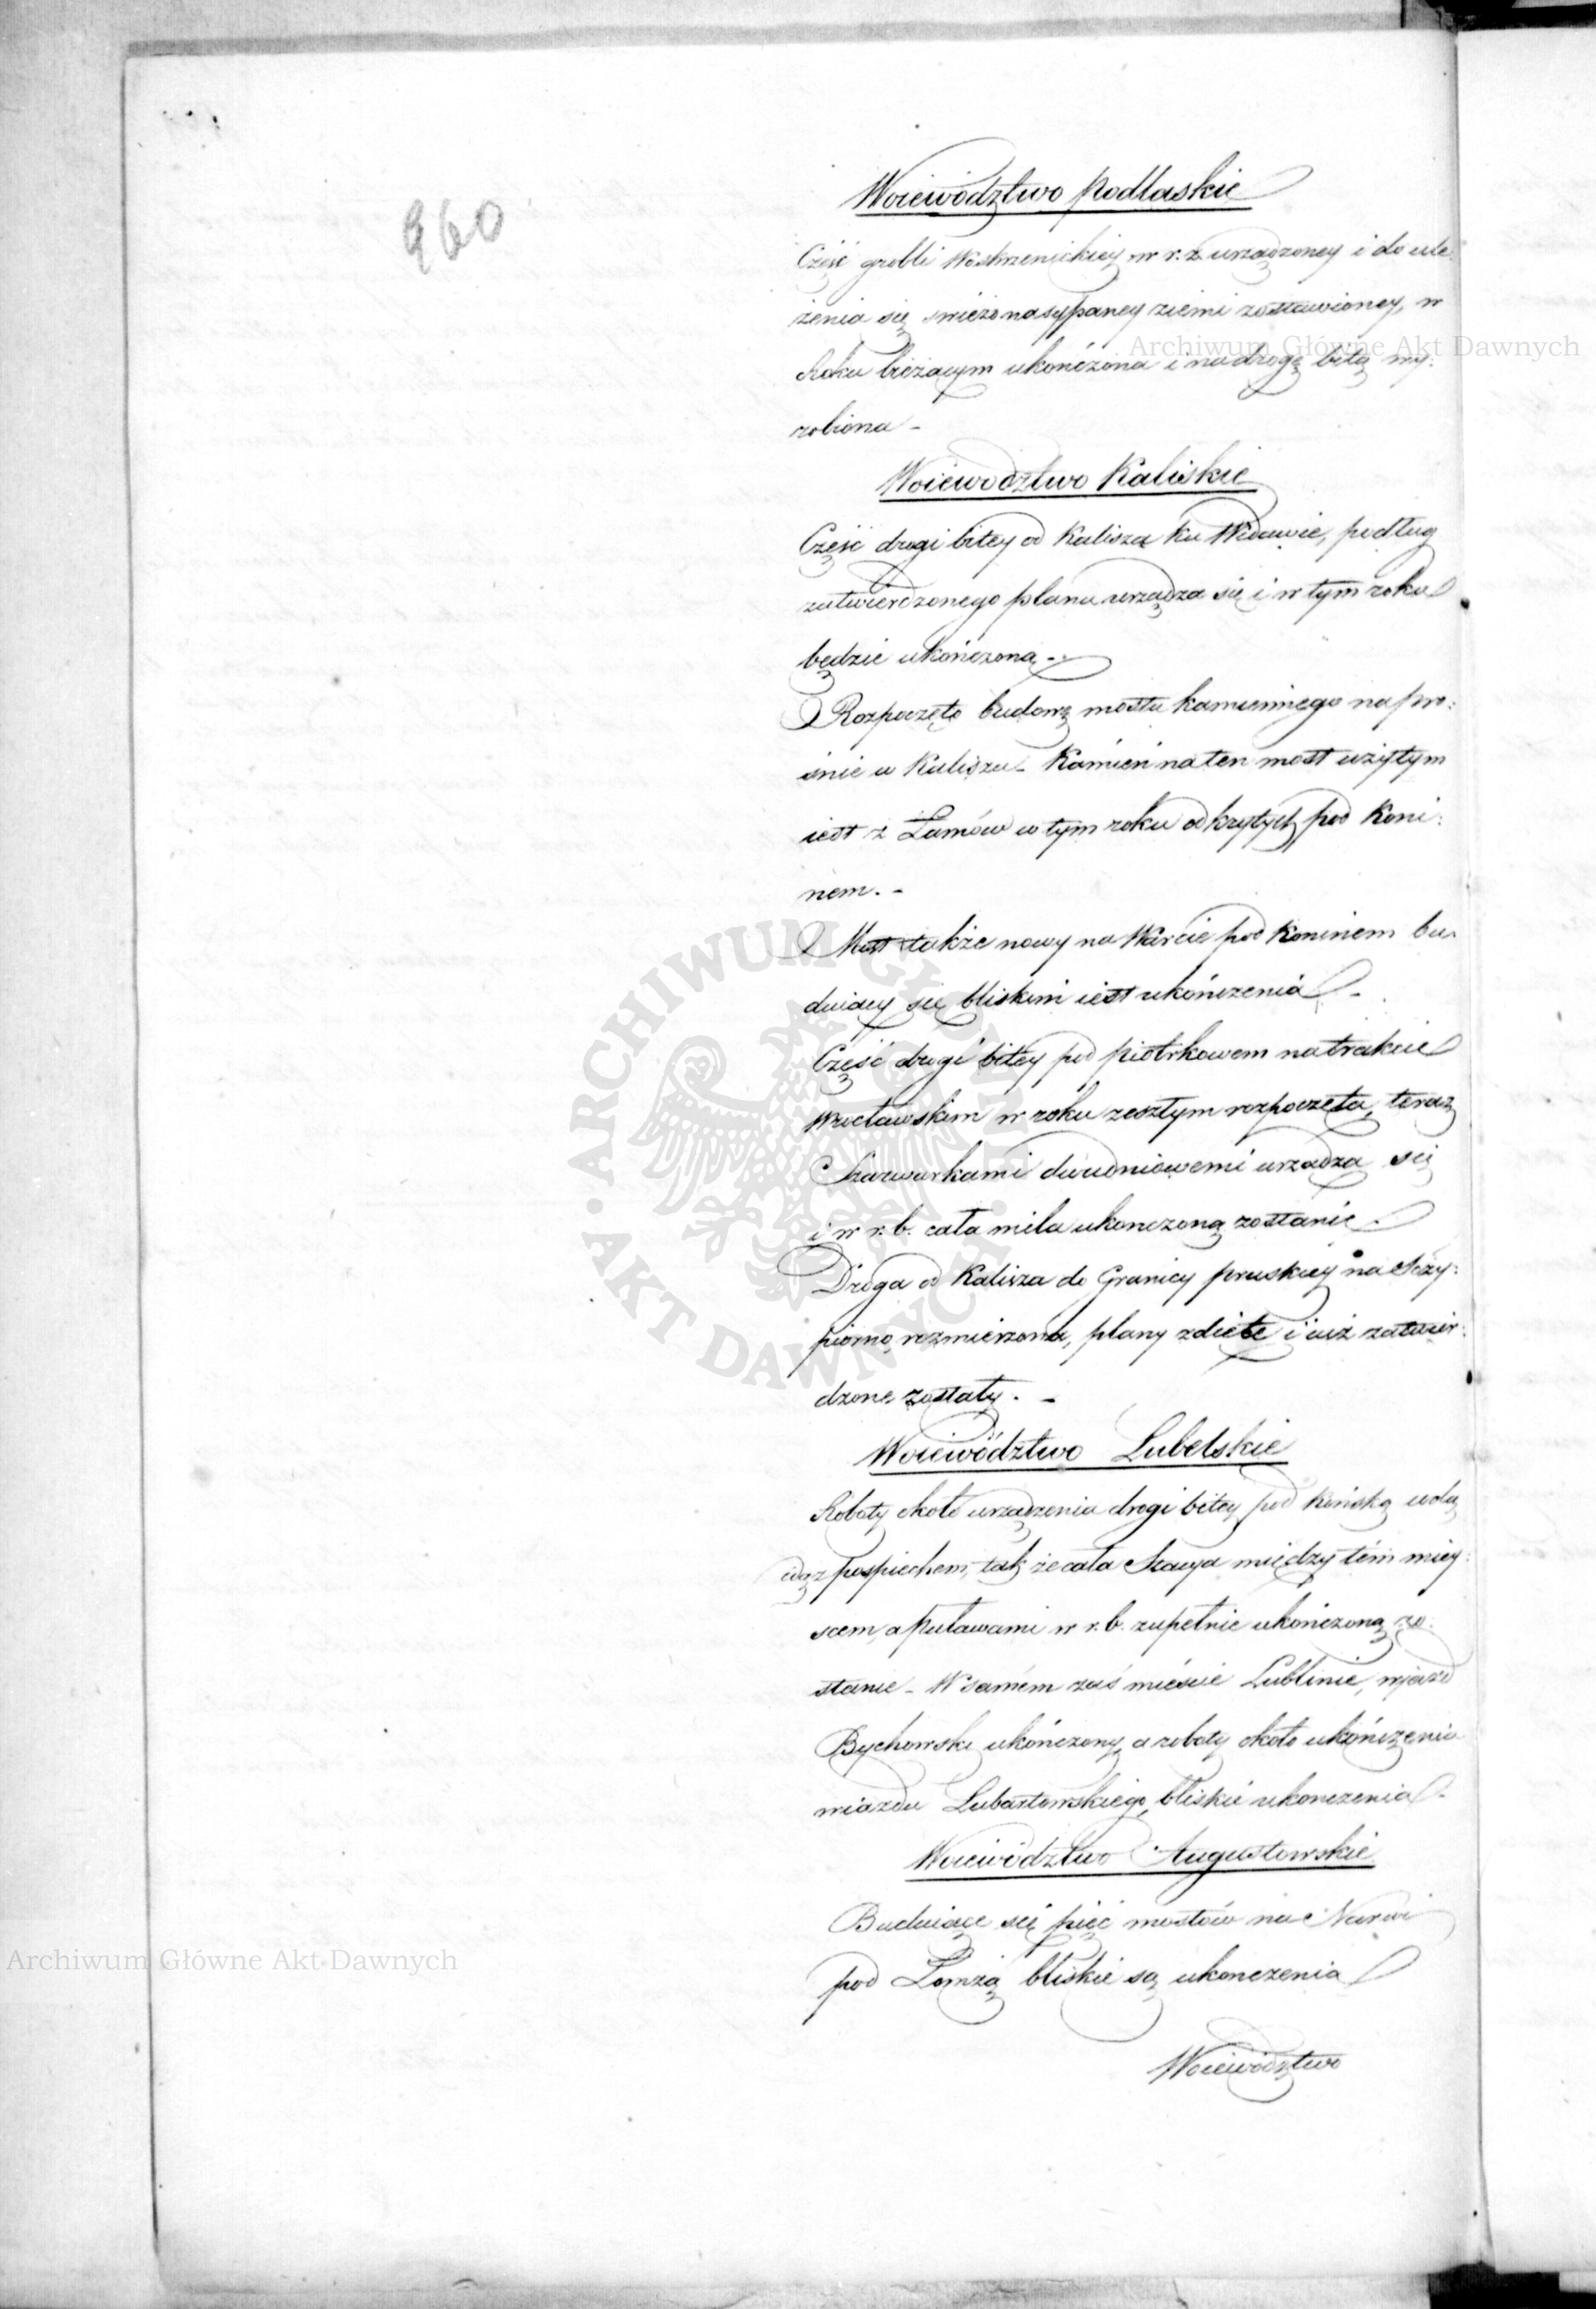 960
Woiewództwo Podlaskie
Część grobli Woskrzenickiey w r. z. urządzoney i do ule:
żenia się swieżo nasypaney ziemi zostawioney, w
Roku bieżącym ukończona i na drogę bitą wy:
robiona -
Woiewodztwo Kaliskie
Część drogi bitey od Kalisza ku Widawie, podług
zatwierdzonego planu urządza się i w tym roku
będzie ukończoną -
Rozpoczęto budowę mostu kamiennego na Pro:
śnie w Kaliszu - Kamień na ten most użytym
iest z Łamów w tym roku odkrytych pod Koni:
nem. -
Most także nowy na Warcie pod Koninem bu:
duiący się bliskim iest ukończenia -
Część drogi bitey pod Piotrkowem na trakcie
Wrocławskim w roku zeszłym rozpoczęta, teraz
Szarwarkami dwudniowemi urządza się
i w r. b. cała mila ukonczoną zostanie.
Droga od Kalisza do Granicy pruskiey na Szczy:
piorno, rozmierzona, plany zdięte i iuż zatwier:
dzone zostały. -
Woiewództwo Lubelskie
Roboty około urządzenia drogi bitey pod Końską wolą
idą z pospiechem, tak że cała Stacya między tém miey:
scem, a Puławami w r. b. zupełnie ukończoną zo:
stanie - W samém zaś mieście Lublinie, wjazd
Bychowski ukończony, a roboty około ukończenia
wiazdu Lubartowskiego, bliskie ukonczenia -
Woiewództwo Augustowskie
Buduiące się pięć mostów na Narwi
pod Łomżą bliskie są ukonczenia
Woiewództwo
Archiwum Główne Akt Dawnych
Archiwum Główne Akt Dawnych
ARCHIWUM GŁÓWNE AKT DAWNYCH